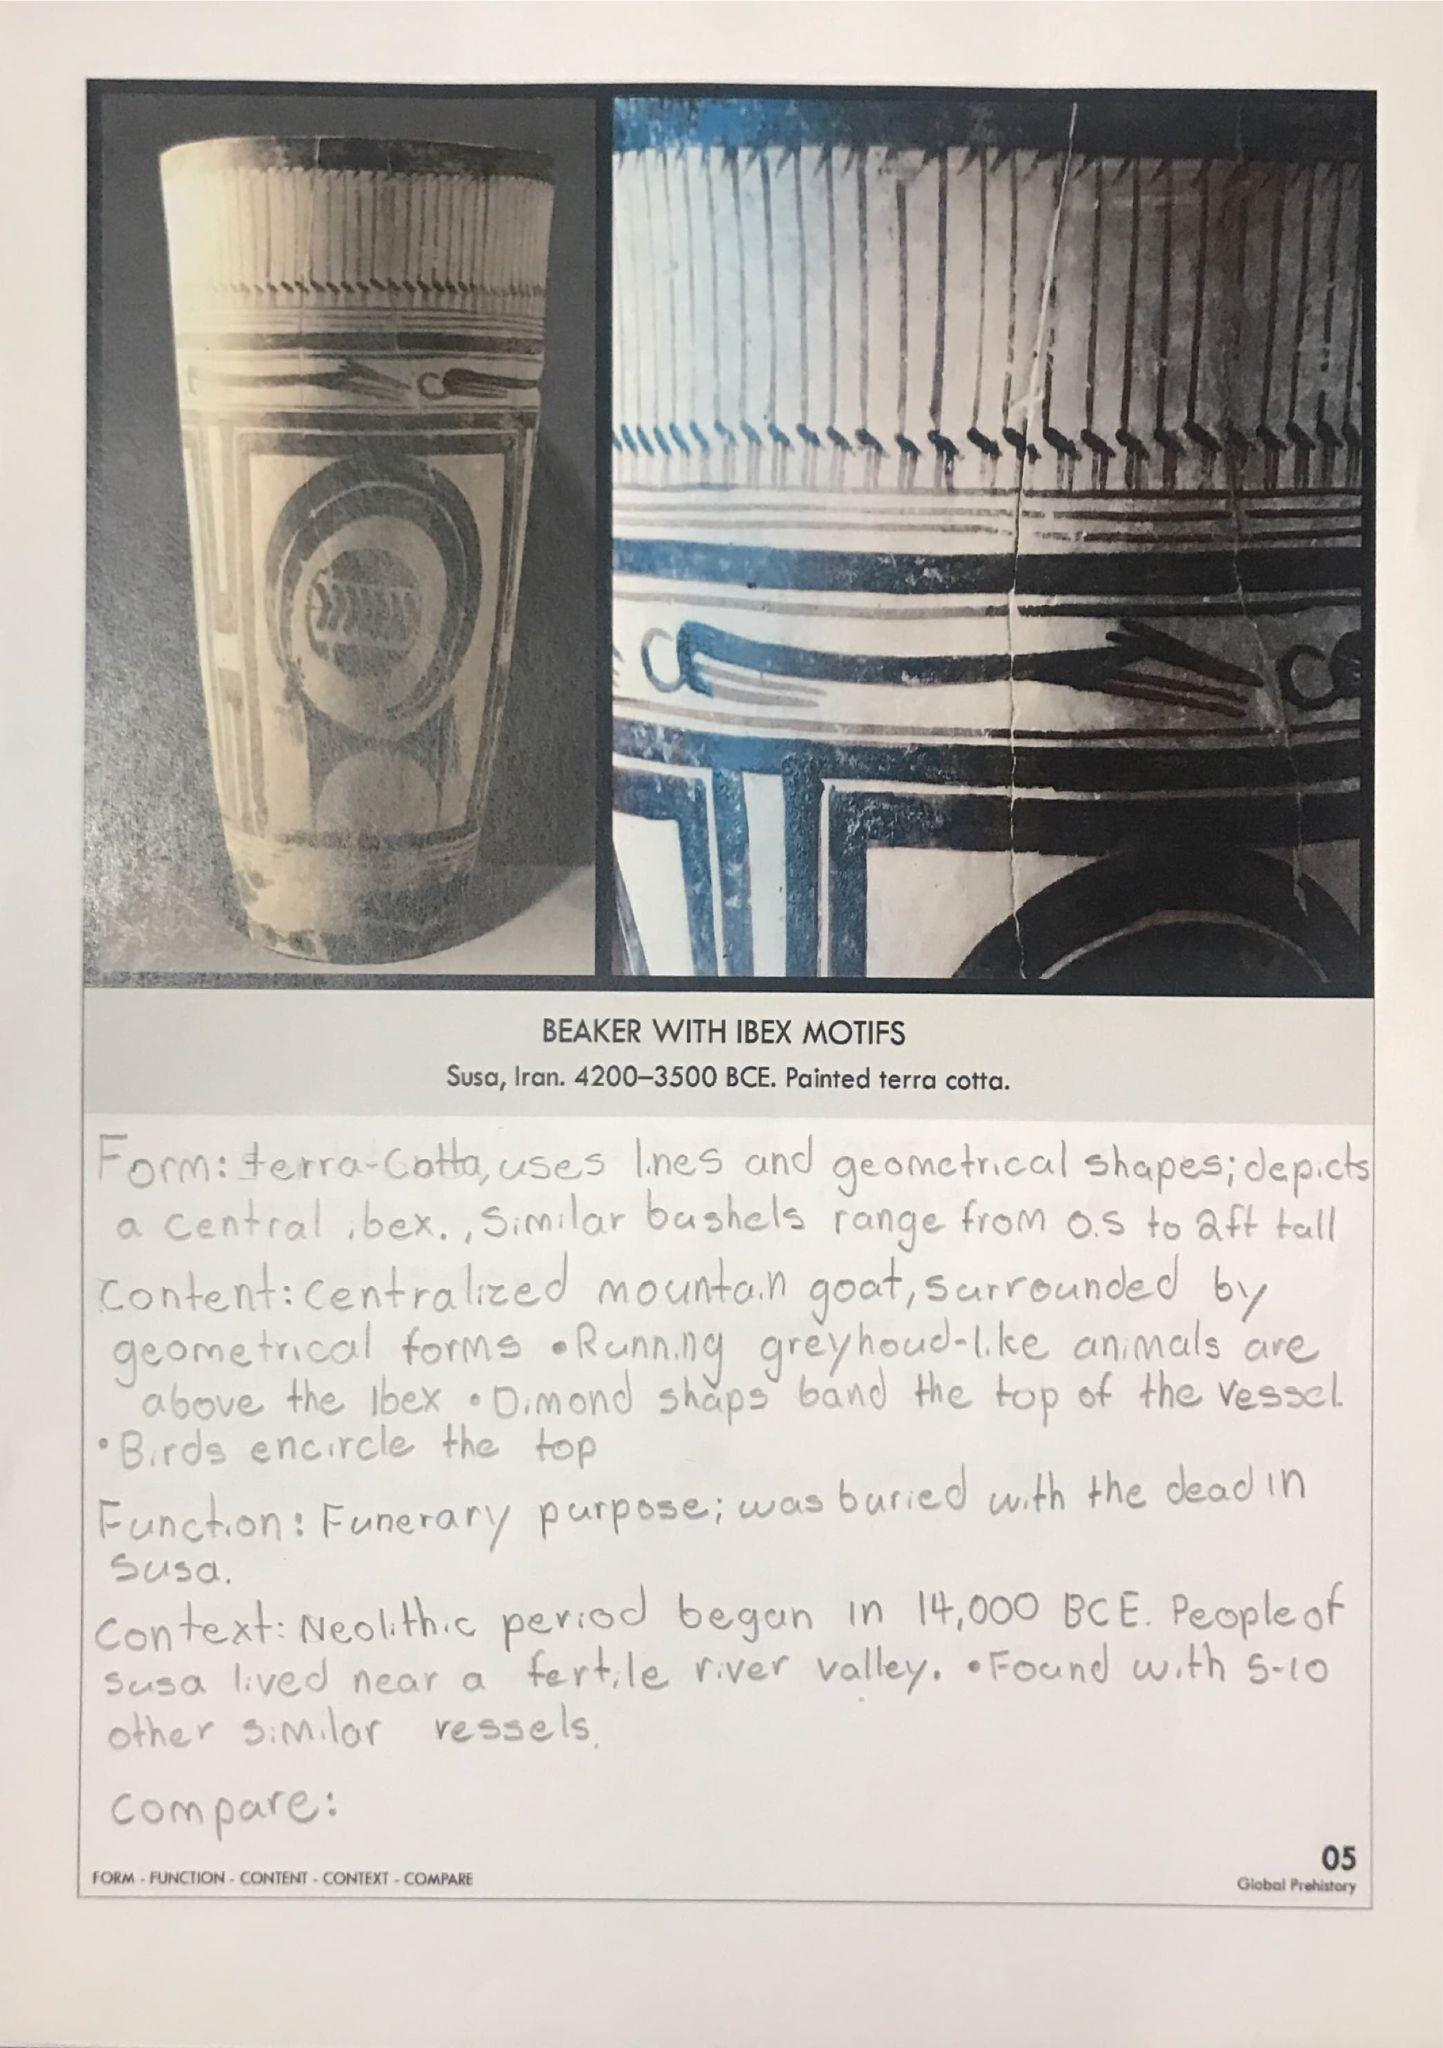 BEAKER WITH IBEX MOTIFS
Susa, Iran. 4200–3500 BCE. Painted terra cotta.
Form: terra-Cotta, uses lines and geometrical shapes; depicts
a central ibex., Similar bushels range from 0.5 to 2ft tall
Content: Centralized mountain goat, surrounded by
geometrical forms • Running greyhoud-like animals are
above the Ibex • Dimond shaps band the top of the vessel.
• Birds encircle the top
Function: Funerary purpose; was buried with the dead in
Susa.
Context: Neolithic period began in 14,000 BCE. People of
Susa lived near a fertile river valley. • Found with 5-10
other similar vessels.
Compare:
FORM - FUNCTION - CONTENT - CONTEXT - COMPARE
05
Global Prehistory